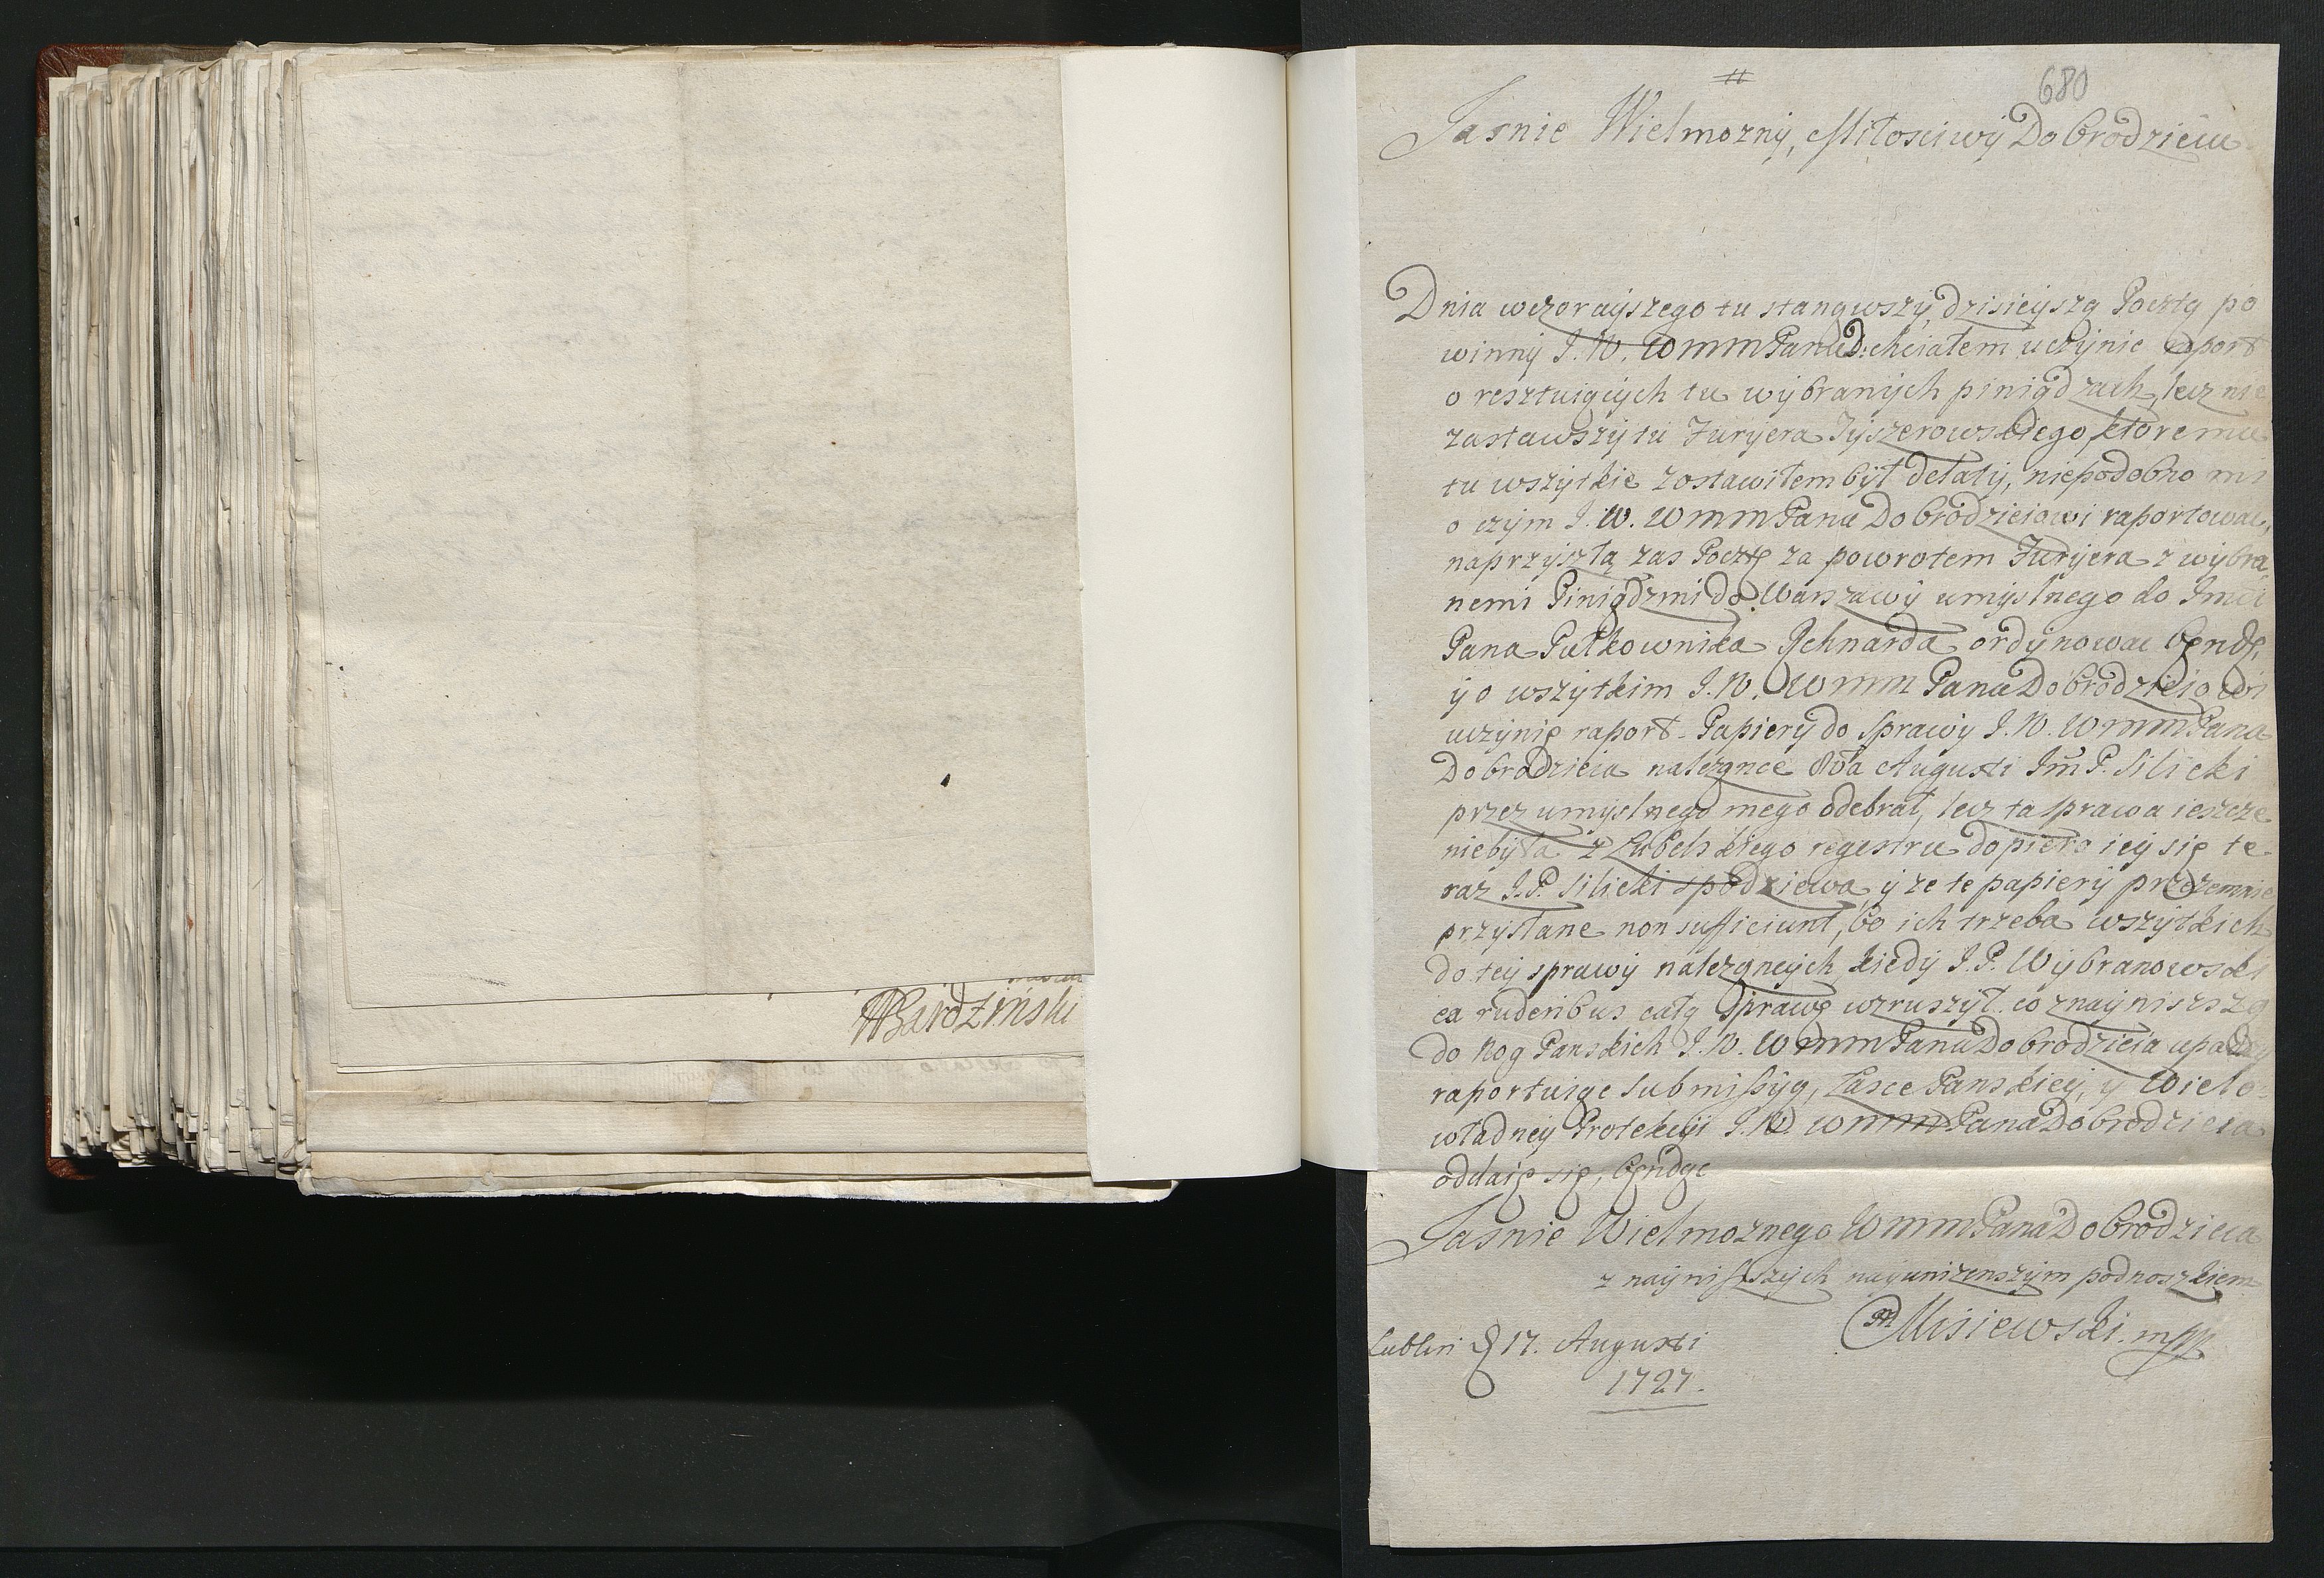 ABardziński
680
Jasnie Wielmozny, Miłosciwy Dobrodzieiu
Dnia wczorayszego tu stanąwszy, dzisieyszą Pocztą po
winny J. W. WMMPanu D: chciałem uczynic raport
o resztuiących tu wybranych piniądzach, lecz nie
zastawszy tu Furyera Tyszerowskiego, ktoremu
tu wszytkie zostawiłem był detaly, niepodobno mi
o czym J. W. WMMPanu Dobrodzieiowi raportowac,
naprzyszłą zas Pocztę za powrotem Furyera z wybra
nemi Piniądzmi do Warszawy umyslnego do Imci
Pana Pułkownika ordynowac bęndę,
y o wszytkim J. W. WMM Panu Dobrodzieiowi
uczynię raport. Papiery do sprawy J. W. WMMPana
Dobrodzieia nalezące 8va Augusti Jm P. Silicki
przez umyslnego mego odebrał, lecz ta sprawa ieszcze
niebyła z Lubelskiego regestru dopiero iey się te
raz J. P. Silicki spodziewa, y ze te papiery przezemnie
przysłane non sufficiunt, bo ich trzeba wszytkich
do tey sprawy nalezących kiedy J. P. Wybranowski
ea ruderibus całą sprawę wzruszył. co znayniszszą
do Nog Panskich J. W. WMMPana Dobrodzieia upadaiąc
raportuiąc submissyą, Łasce Panskiey, y Wielo=
władney Protekcyi J. W. WMMPana Dobrodzieia
oddaię się, bęndąc
Jasnie Wielmoznego WMMPana Dobrodzieia
z nayniszszych nayunizenszym podnoszkiem
Misiewski mpp
Lublin d 17. Augusti
1727.